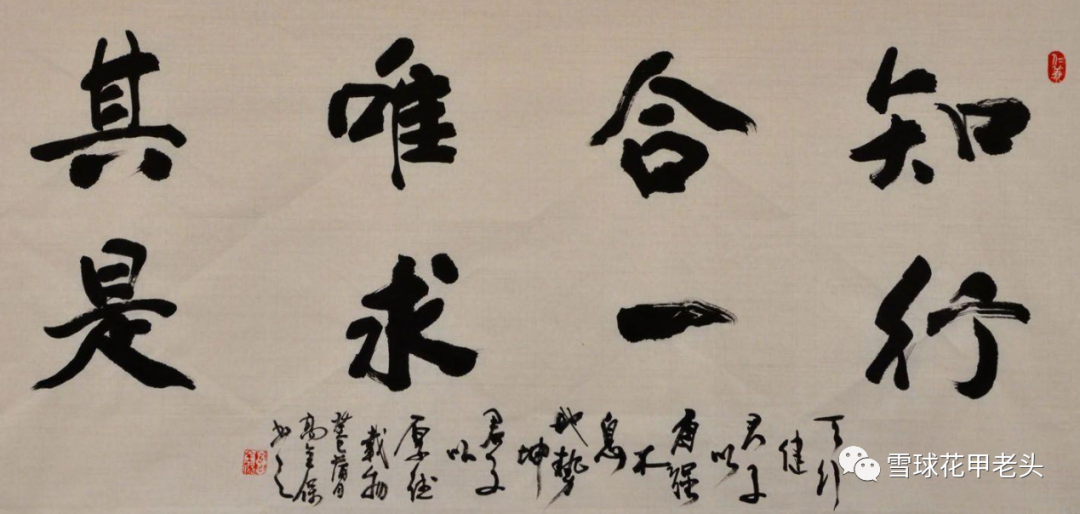 知行
合一
唯求
其是
天行
健
君子
以
自强
不
息
地势
坤
君子
以
厚德
载物
高金保
书之
仁義
雪球花甲老头